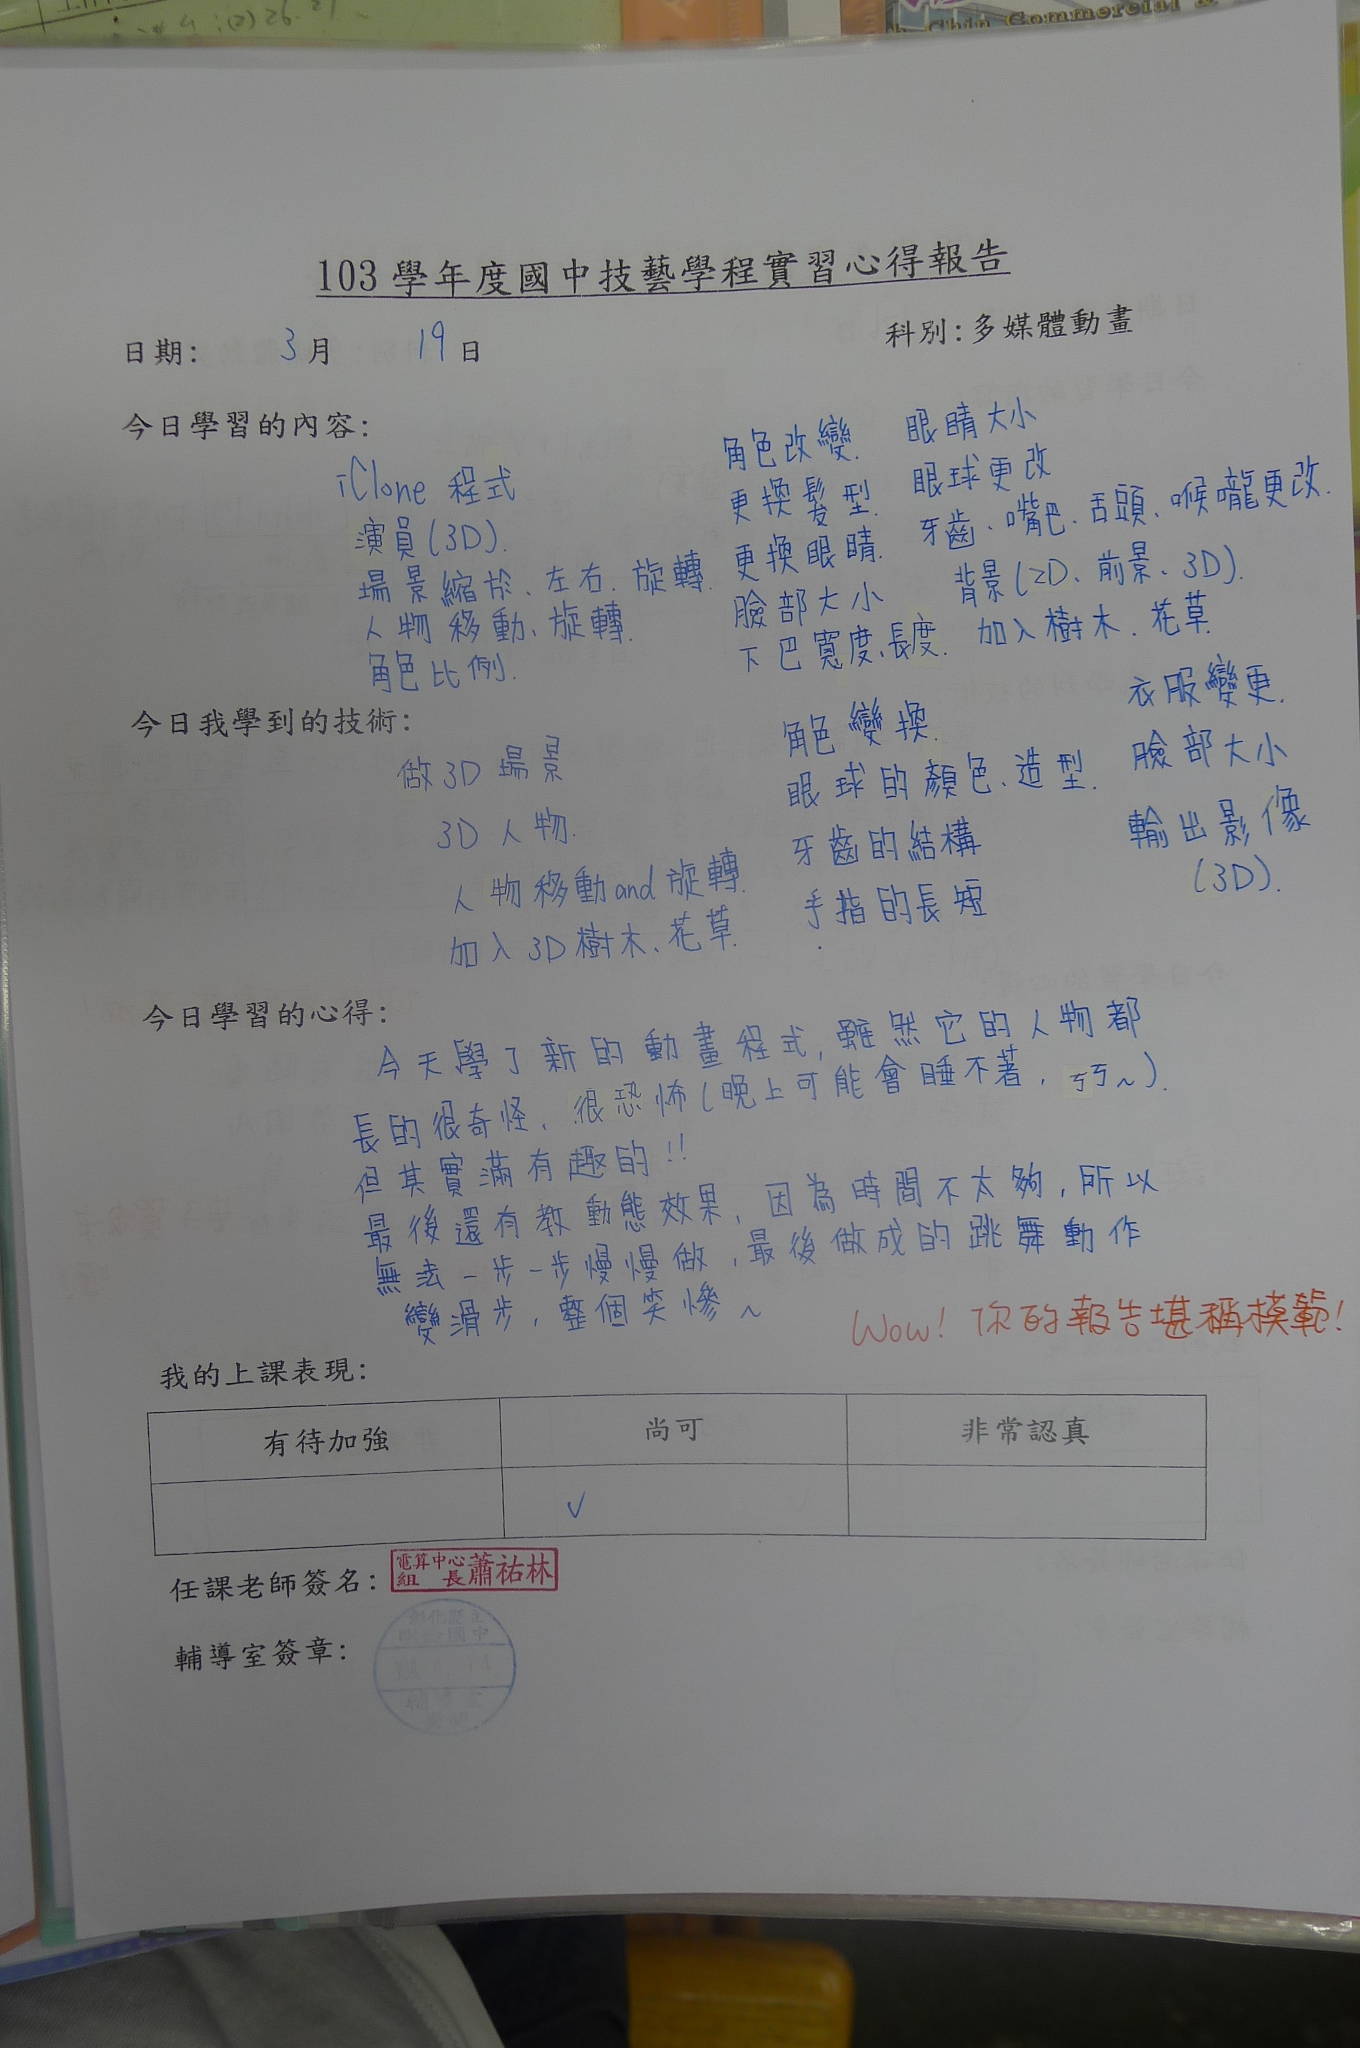 103 學年度國中技藝學程實習心得報告
日期: 3 月 19 日
科別:多媒體動畫
今日學習的內容:
iClone 程式
演員(3D).
場景縮放、左右、旋轉.
人物移動、旋轉.
角色比例.
角色改變.
更換髮型.
更換眼睛.
臉部大小
下巴寬度、長度.
眼睛大小
眼球更改
牙齒、嘴巴、舌頭、喉嚨更改.
背景(2D、前景、3D).
加入樹木、花草.
今日我學到的技術:
做3D場景
3D人物.
人物移動and旋轉.
加入3D樹木、花草.
角色變換.
眼球的顏色、造型.
牙齒的結構
手指的長短
衣服變更.
臉部大小
輸出影像
(3D).
今日學習的心得:
今天學了新的動畫程式,雖然它的人物都
長的很奇怪、很恐怖(晚上可能會睡不著,ㄎㄎ~).
但其實滿有趣的!!
最後還有教動態效果,因為時間不太夠,所以
無法一步一步慢慢做,最後做成的跳舞動作
變滑步,整個笑慘~
Wow! 你的報告堪稱模範!
我的上課表現:
有待加強 尚可 非常認真
✓
任課老師簽名:
電算中心
組 長 蕭祐林
輔導室簽章:
彰化縣立